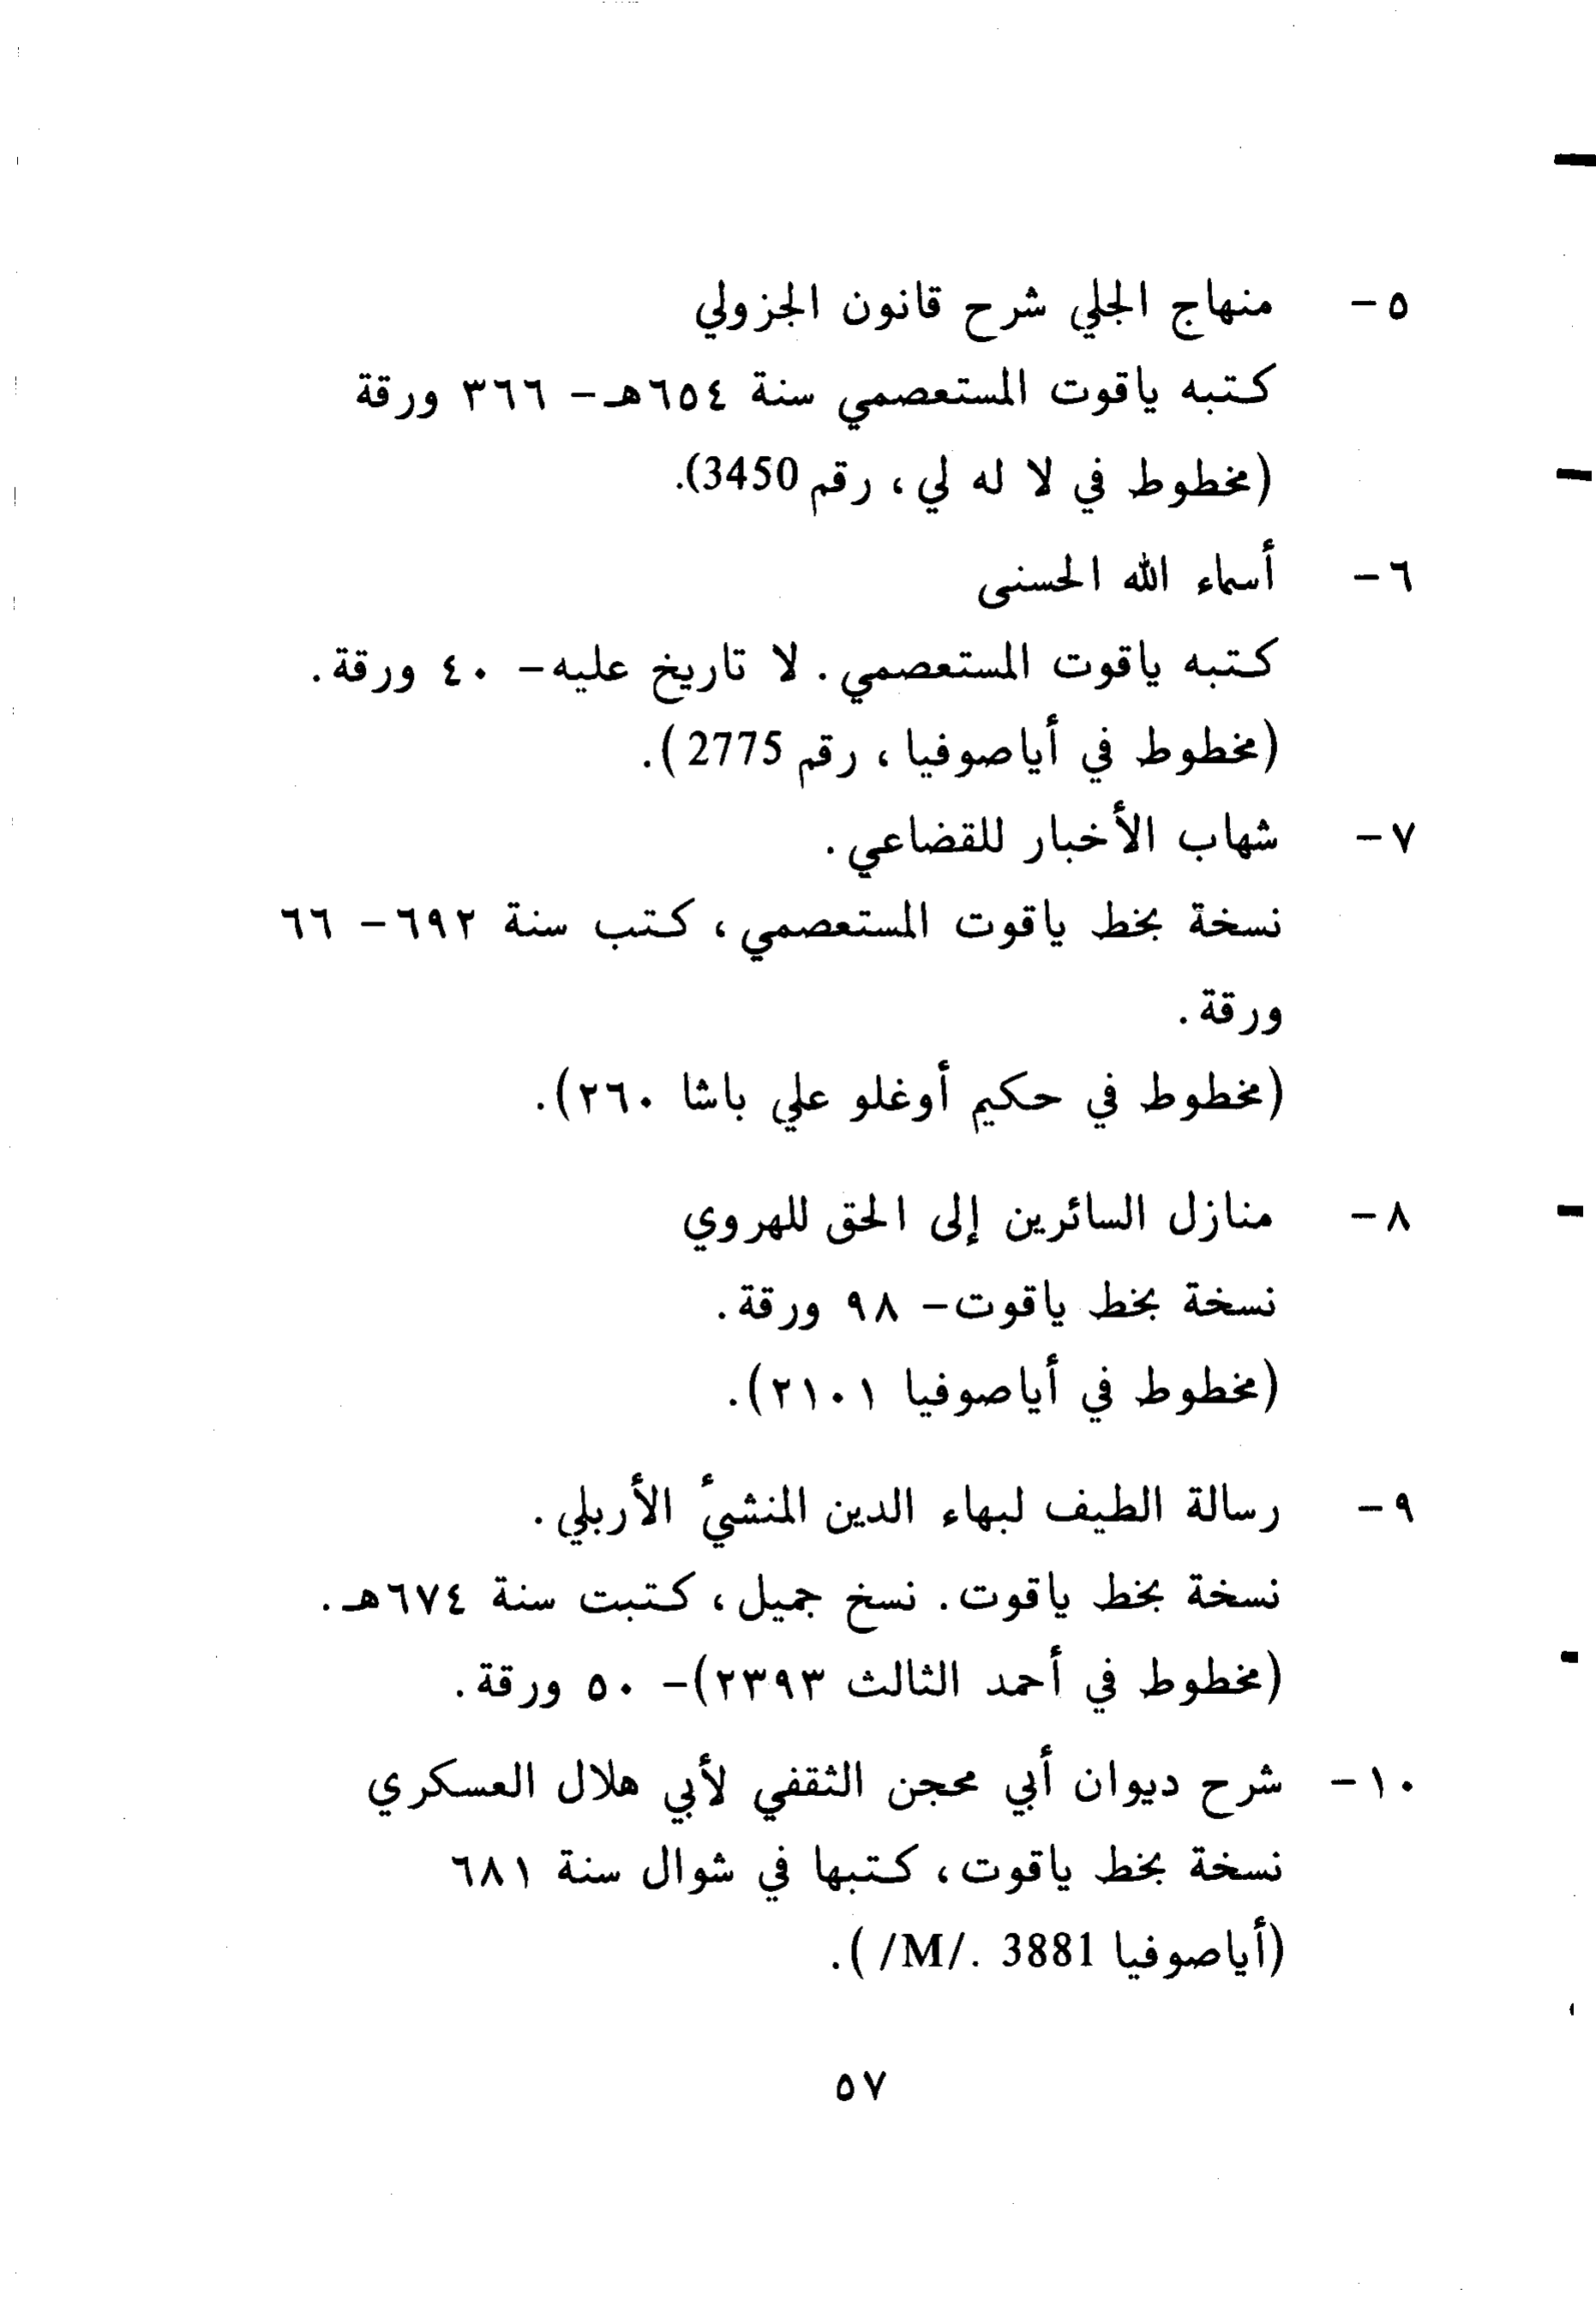 ٥- منهاج الجلي شرح قانون الجزولي
كتبه ياقوت المستعصمي سنة ٦٥٤هـ- ٣٦٦ ورقة
(مخطوط في لا له لي، رقم 3450).
٦- أسماء الله الحسنى
كتبه ياقوت المستعصمي. لا تاريخ عليه- ٤٠ ورقة.
(مخطوط في أياصوفيا، رقم 2775).
٧- شهاب الأخبار للقضاعي.
نسخة بخط ياقوت المستعصمي، كتب سنة ٦٩٢- ٦٦
ورقة.
(مخطوط في حكيم أوغلو علي باشا ٢٦٠).
٨- منازل السائرين إلى الحق للهروي
نسخة بخط ياقوت- ٩٨ ورقة.
(مخطوط في أياصوفيا ٢١٠١).
٩- رسالة الطيف لبهاء الدين المنشيُ الأربلي.
نسخة بخط ياقوت. نسخ جميل، كتبت سنة ٦٧٤هـ.
(مخطوط في أحمد الثالث ٢٣٩٣)- ٥٠ ورقة.
١٠- شرح ديوان أبي محجن الثقفي لأبي هلال العسكري
نسخة بخط ياقوت، كتبها في شوال سنة ٦٨١
(أياصوفيا 3881 ./M/ ).
٥٧